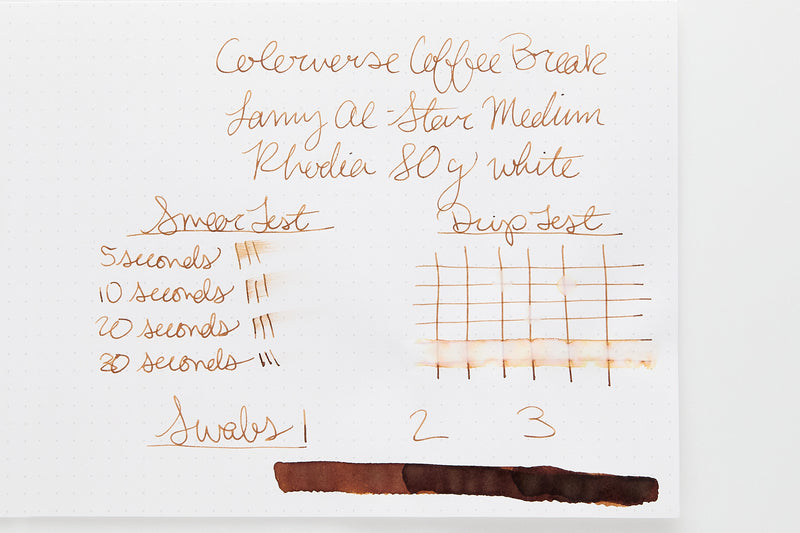 Colorverse Coffee Break
Lamy Al-Star Medium
Rhodia 80 g white
Smear Test
5 seconds
10 seconds
20 seconds
30 seconds
Drip Test
Swabs 1 2 3